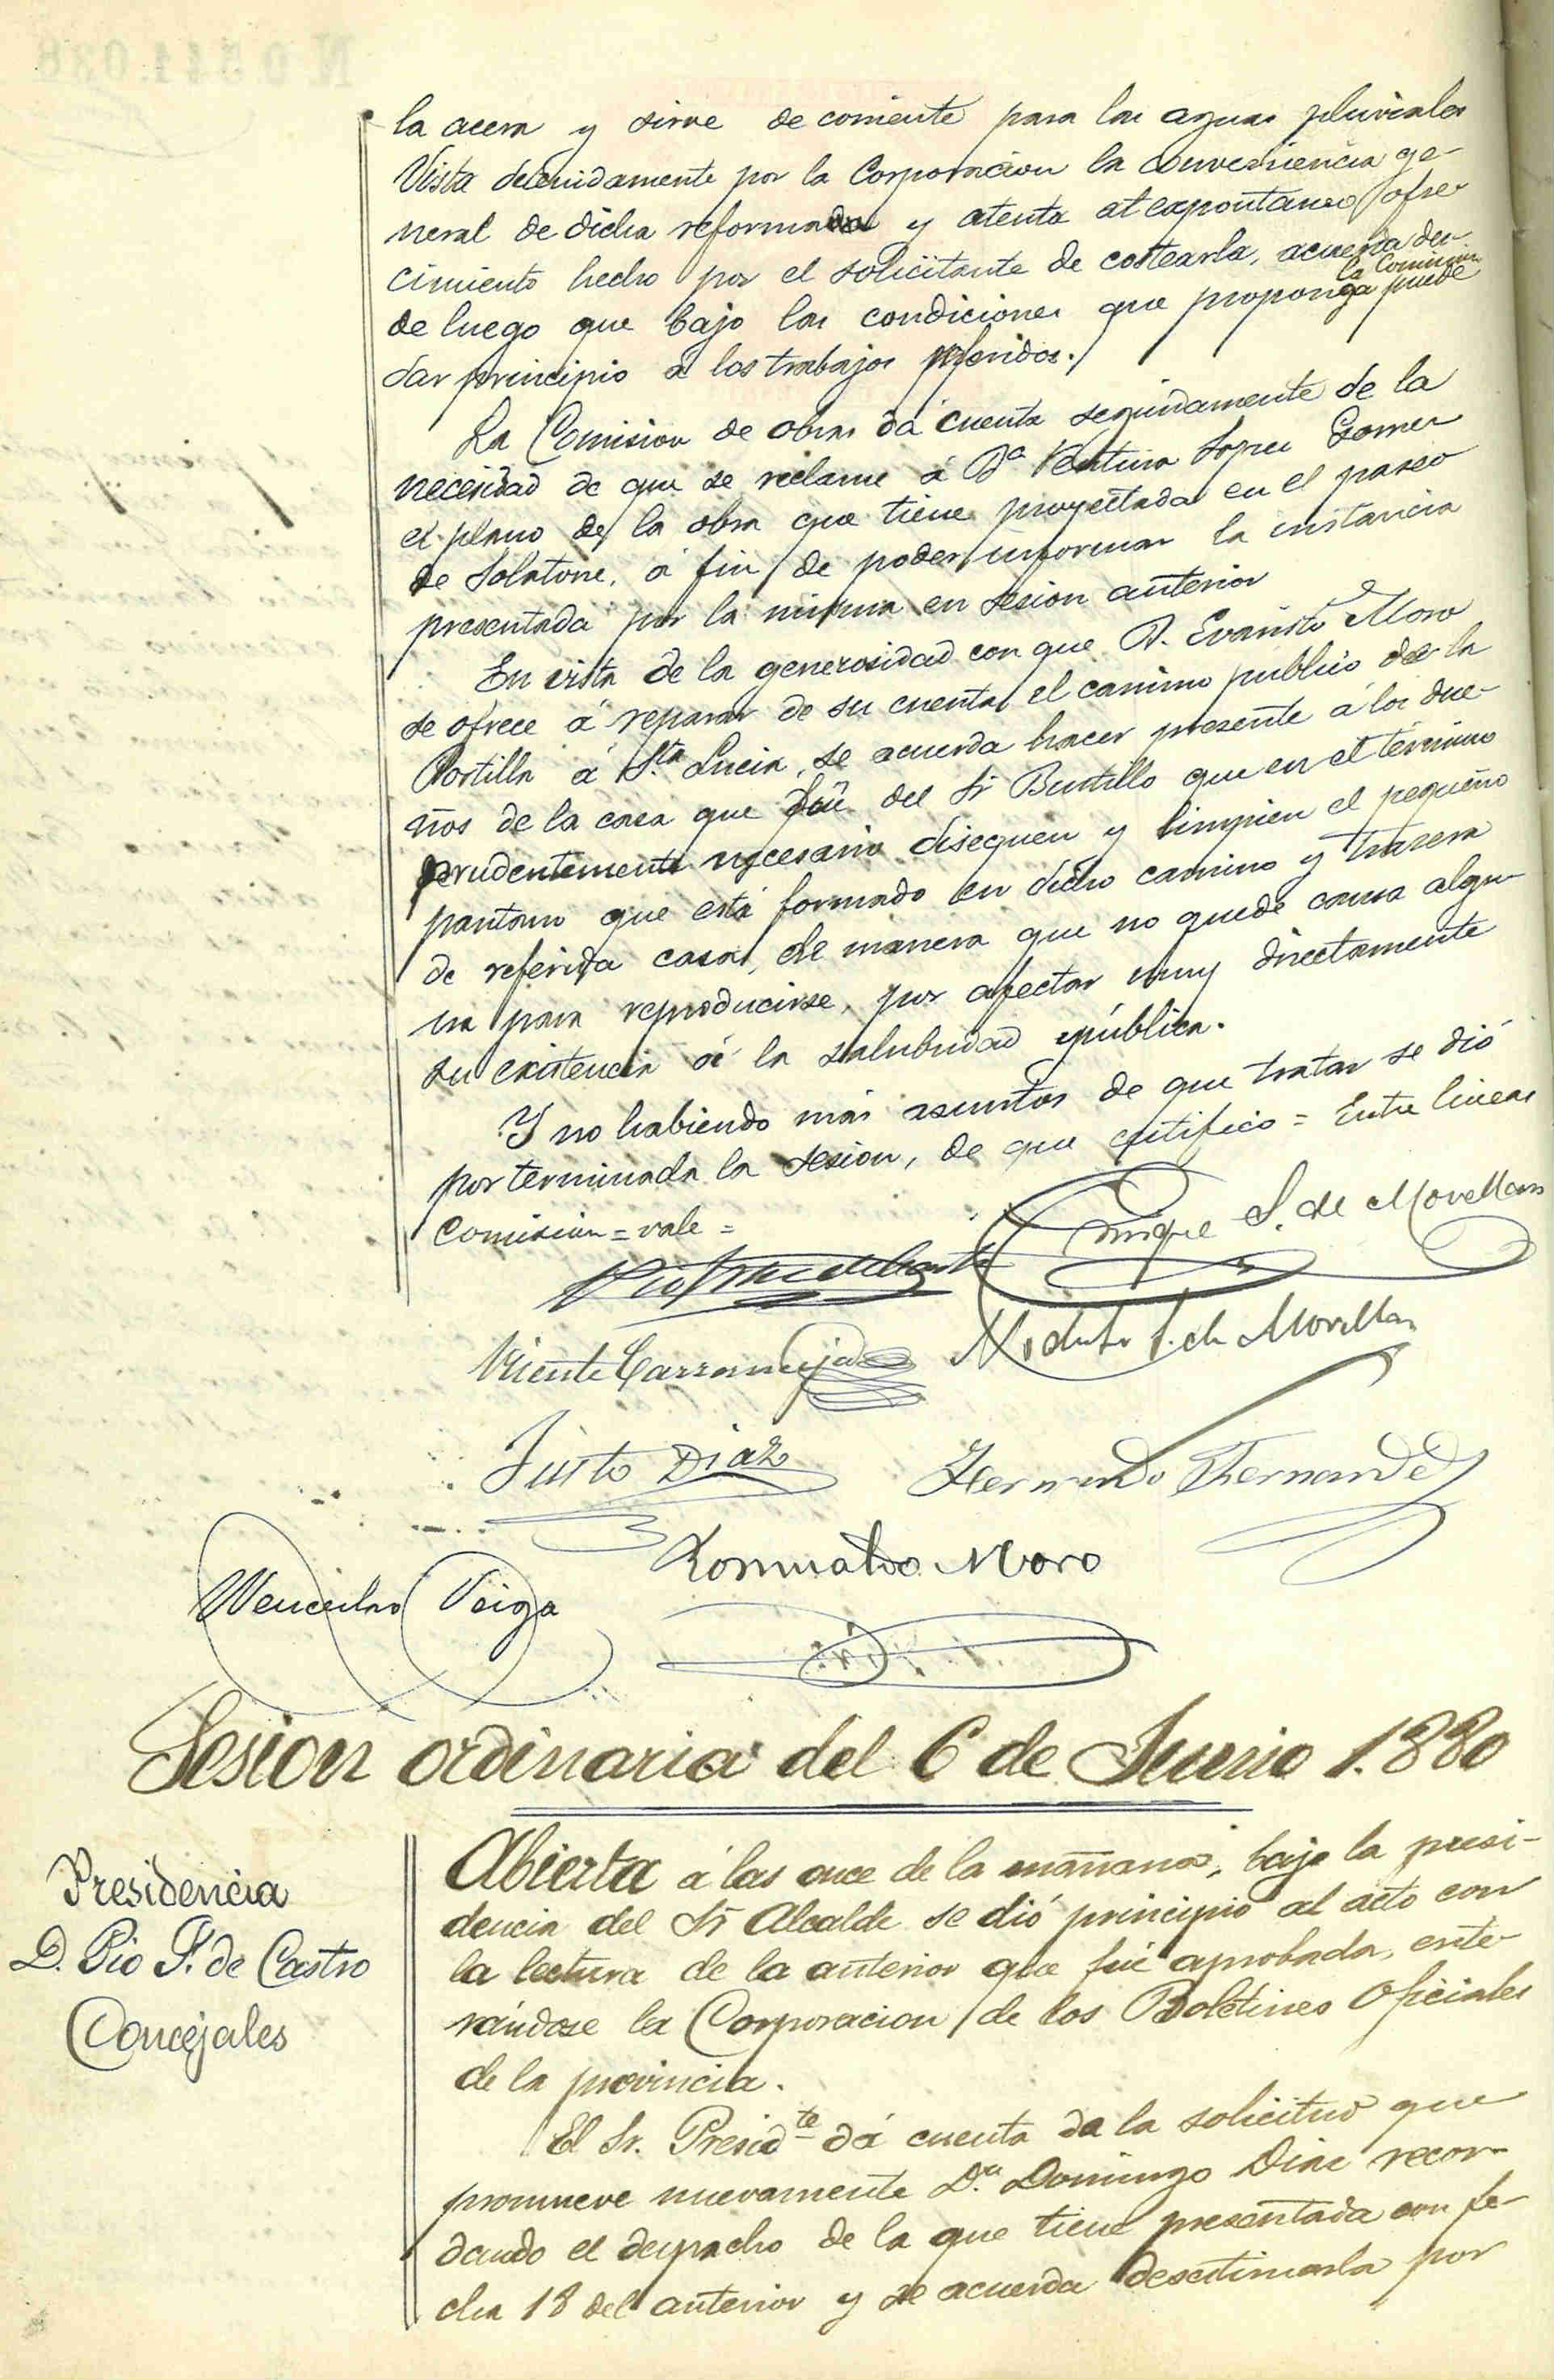 la acera y sirve de corriente para las aguas pluviales
Vista detenidamente por la Corporacion la conveniencia ge-
neral de dicha reforma y atenta al expontaneo ofre-
cimiento hecho por el solicitante de costearla, acuerda des-
de luego que bajo las condiciones que proponga la Comision puede
dar principio á los trabajos referidos.
La Comision de obras dá cuenta seguidamente de la
necesidad de que se reclame á Dª Ventura Lopez Gomez
el plano de la obra que tiene proyectada en el paseo
de Solatorre, á fin de poder informar la instancia
presentada por la misma en sesion anterior
En vista de la generosidad con que D. Evaristo Moro
se ofrece á reparar de su cuenta el camino público de la
Portilla á Sta Lucia, se acuerda hacer presente á los due-
ños de la casa que fué del Sr Bustillo que en el término
prudentemente necesario disequen y limpien el pequeño
pantano que está formado en dicho camino y trasera
de referida casa, de manera que no quede causa algu-
na para reproducirse, por afectar muy directamente
su existencia á la salubridad pública.
Y no habiendo más asuntos de que tratar se dió
por terminada la sesion, de que certifico = Entre lineas
Comision = vale =
Enrique S. de Movellan
Vicente Carranceja
Modesto S. de Movellan
Justo Diaz
Hermando Fernandez
Romualdo Moro
Wenceslao Veiga
Sesion ordinaria del 6 de Junio 1.880
Presidencia
D. Pio F. de Castro
Concejales
Abierta á las once de la mañana, bajo la presi-
dencia del Sr Alcalde se dió principio al acto con
la lectura de la anterior que fué aprobada, ente-
rándose la Corporacion de los Boletines Oficiales
de la provincia.
El Sr. Presidte dá cuenta de la solicitud que
promueve nuevamente D.n Domingo Diaz recor-
dando el despacho de la que tiene presentada con fe-
cha 18 del anterior y se acuerda desestimarla por